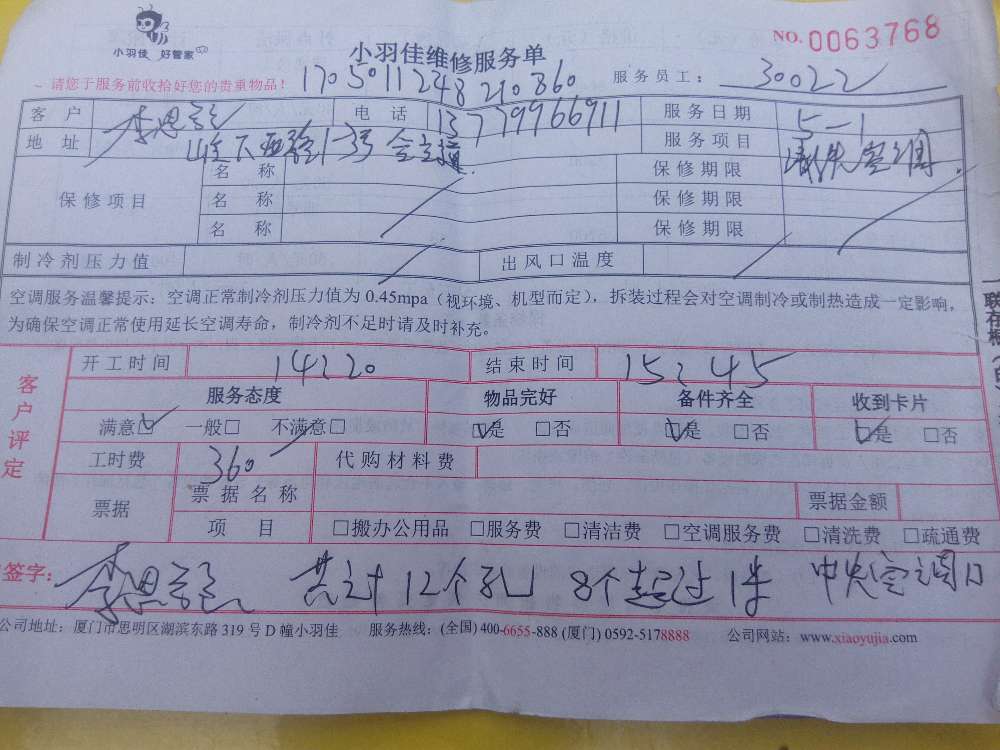 小羽佳 好管家
小羽佳维修服务单
NO. 0063768
~ 请您于服务前收拾好您的贵重物品！
1705011248210860
服务员工： 30022
客 户 李思 电 话 13779966911 服务日期 5-1
地 址 服务项目 清洗空调
保修项目 名 称 保修期限
名 称 保修期限
名 称 保修期限
制冷剂压力值 出风口温度
空调服务温馨提示：空调正常制冷剂压力值为0.45mpa（视环境、机型而定），拆装过程会对空调制冷或制热造成一定影响，
为确保空调正常使用延长空调寿命，制冷剂不足时请及时补充。
客户评定
开工时间 14:20 结束时间 15:45
服务态度 物品完好 备件齐全 收到卡片
满意☑ 一般□ 不满意□ ☑是 □否 ☑是 □否 ☑是 □否
工时费 360 代购材料费
票据 票据名称 票据金额
项 目 □搬办公用品 □服务费 □清洁费 □空调服务费 □清洗费 □疏通费
签字： 李思 共计12个孔 8个超过1米 中央空调口
公司地址：厦门市思明区湖滨东路319号D幢小羽佳 服务热线：(全国) 400-6655-888 (厦门) 0592-5178888 公司网站：www.xiaoyujia.com